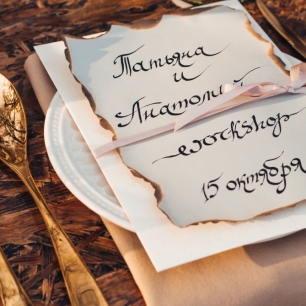 Татьяна
и
Анатолий
workshop
15 октября